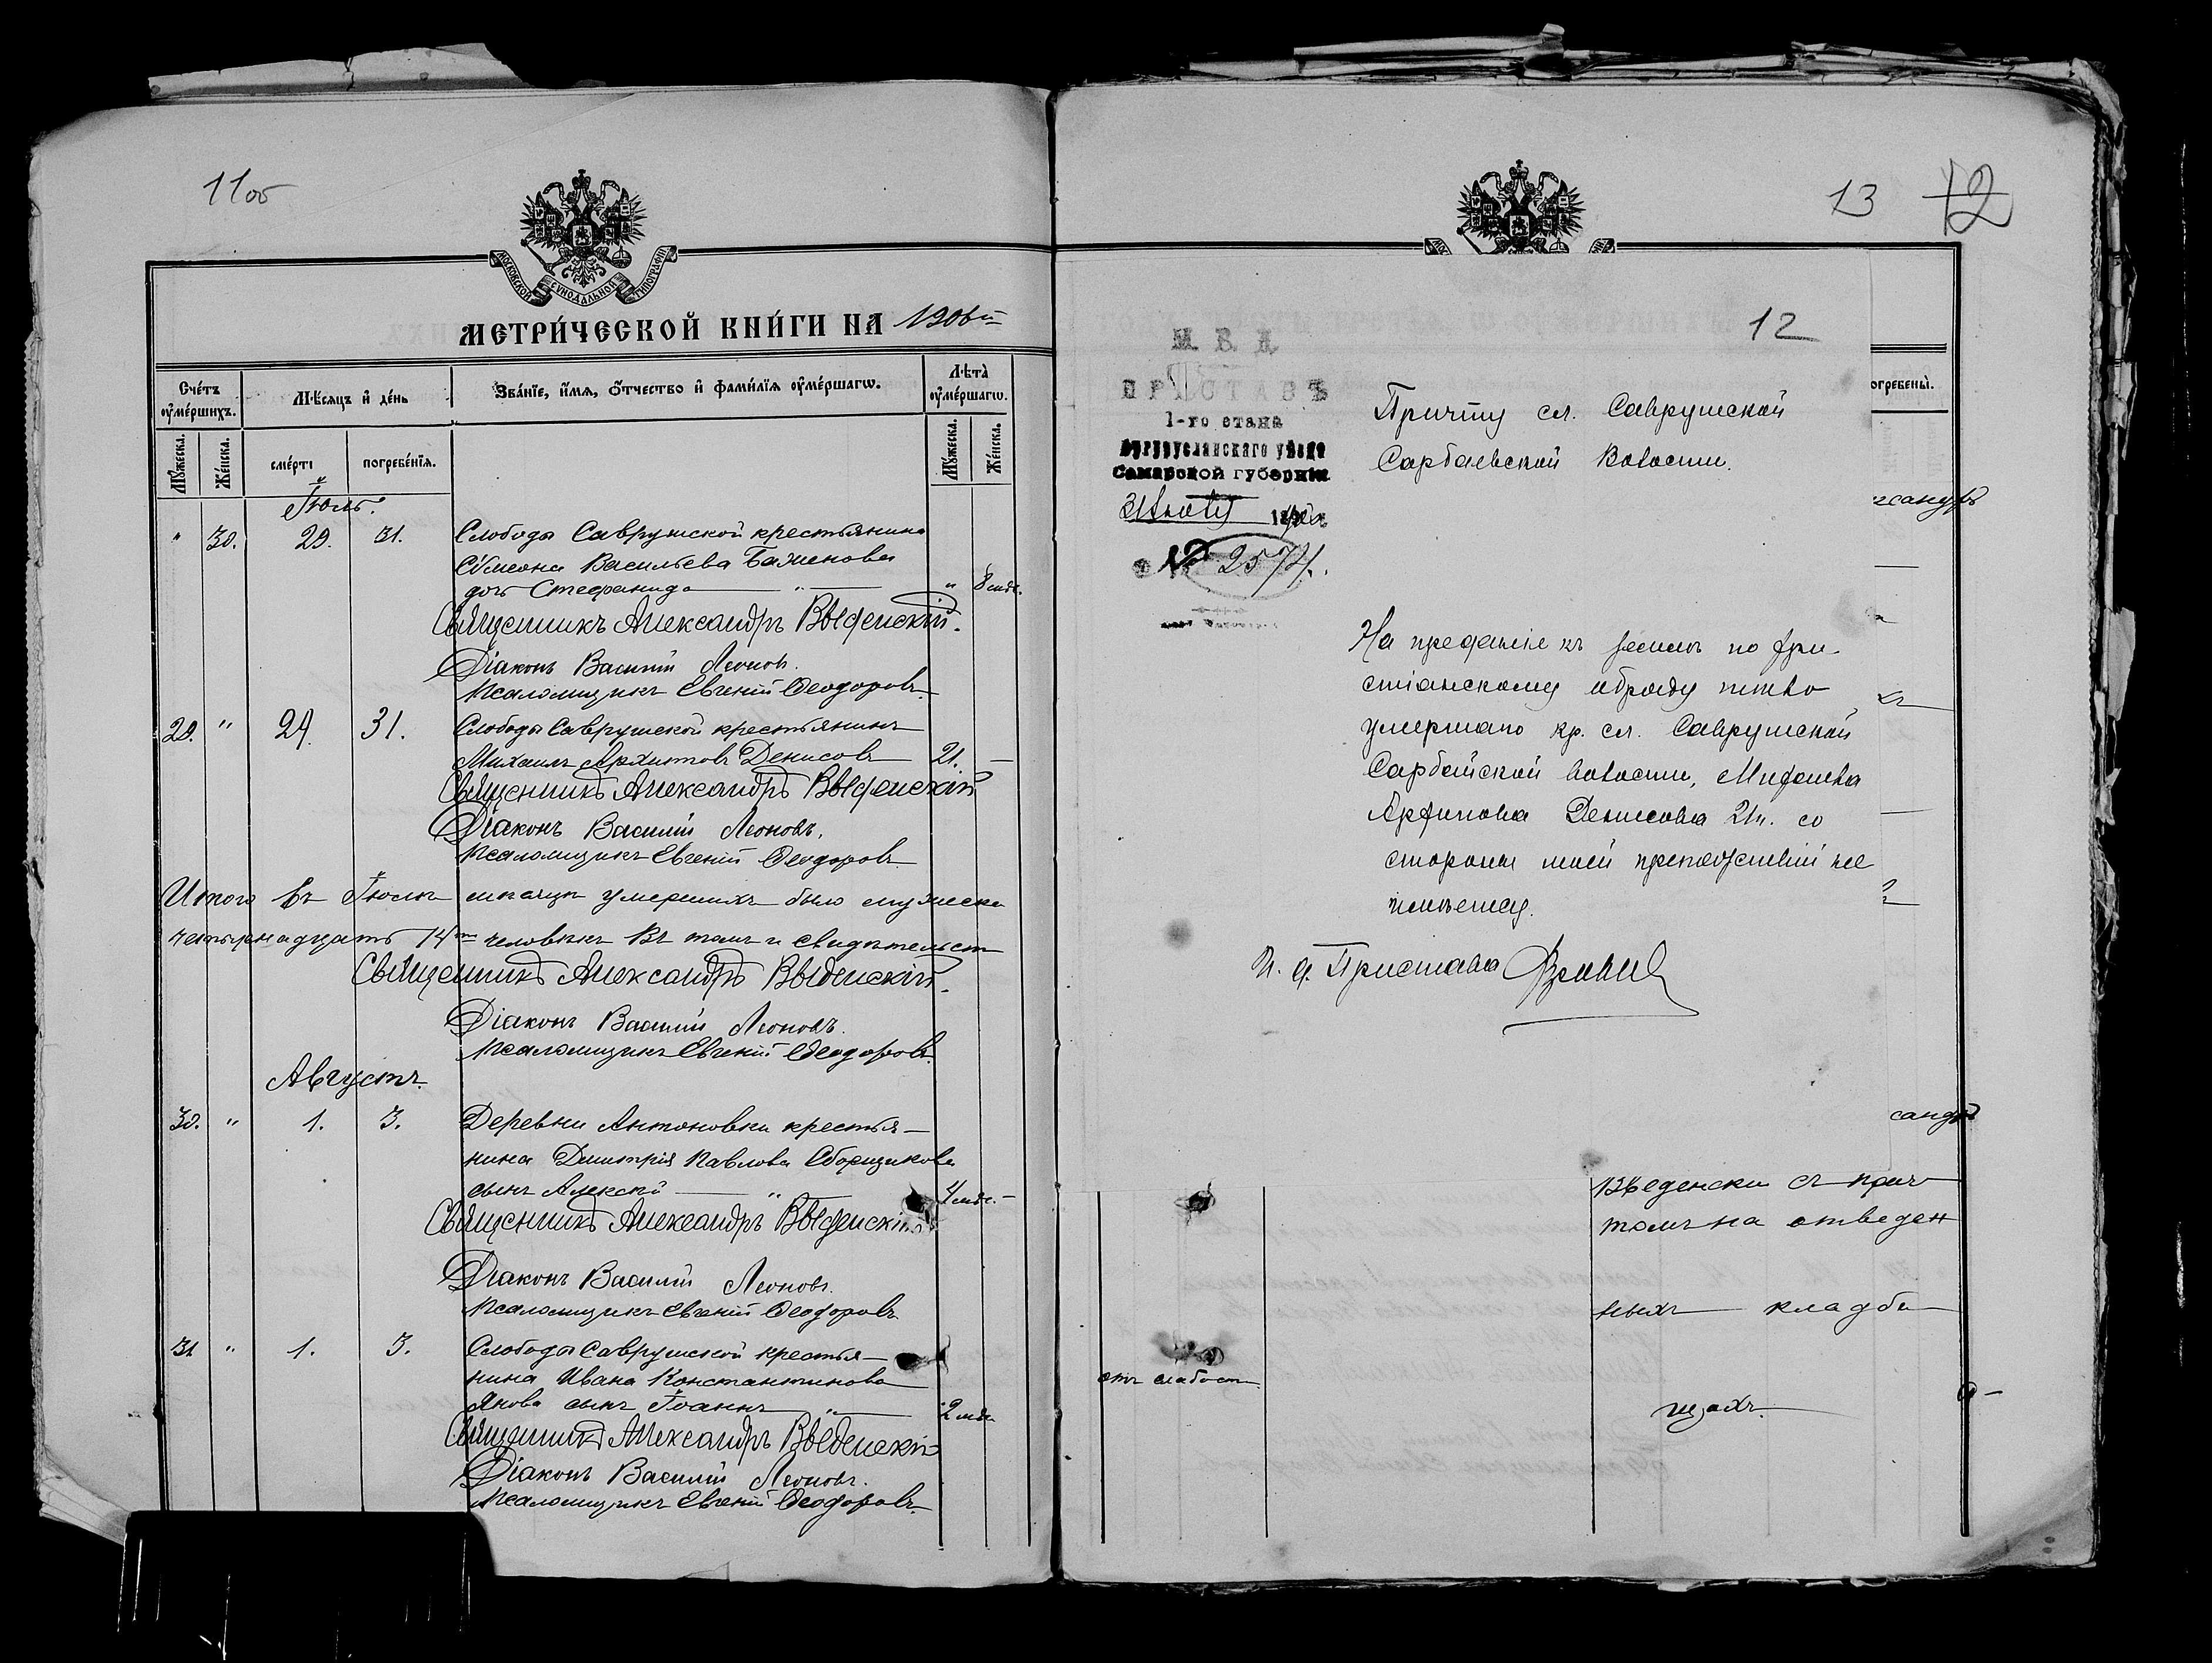 11об
МОСКОВСКОЙ СѴНОДАЛЬНОЙ ТИПОГРАФІИ
МЕТРИ́ЧЕСКОЙ КНИ́ГИ НА 1906й
Сче́тъ ᲂу҆ме́ршихъ.
Мѣ́сяцъ и҆ де́нь
Зва́нїе, и҆́мѧ, ѻ҆́тчество и҆ фами́лїѧ ᲂу҆ме́ршагѡ.
Лѣ́та ᲂу҆ме́ршагѡ.
Мꙋ́жеска. Же́нска.
сме́рти погребе́нїѧ.
Мꙋ́жеска. Же́нска.
Іюль.
" 30. 29. 31. Слободы Саврушской крестьянина
Сѵмеона Васильева Баженова
дочь Стефанида " " 8 мѣс.
Священникъ Александръ Введенскій.
Діаконъ Василій Леоновъ.
Псаломщикъ Евгеній Ѳеодоровъ
29. " 29. 31. Слободы Саврушской крестьянинъ
Михаилъ Архиповъ Денисовъ 21. —
Священникъ Александръ Введенскій
Діаконъ Василій Леоновъ.
Псаломщикъ Евгеній Ѳеодоровъ
Итого въ Іюлѣ мѣсяцѣ умершихъ было мужеска
четырнадцать 14ть человѣкъ Въ томъ и свидѣтельст
Священникъ Александръ Введенскій.
Діаконъ Василій Леоновъ.
Псаломщикъ Евгеній Ѳеодоровъ.
Августъ.
30. " 1. 3. Деревни Антоновки крестья—
нина Димитрія Павлова Сборщикова
сынъ Алексій " 4 мѣс. —
Священникъ Александръ Введенскій
Діаконъ Василій Леоновъ.
Псаломщикъ Евгеній Ѳеодоровъ
31 " 1. 3. Слободы Саврушской крестья—
нина Ивана Константинова
Янова сынъ Іоаннъ " 2 мѣс.
Священникъ Александръ Введенскій
Діаконъ Василій Леоновъ.
Псаломщикъ Евгеній Ѳеодоровъ.
13 12
12
М. В. Д.
ПРИСТАВЪ
1-го стана
Бугурусланскаго уѣзда
Самарской губерніи
№ 2574.
Причту сл. Саврушской
Сарбаевской Волости.
На преданіе къ землѣ по хри-
стіанскому обряду тѣло
умершаго кр. сл. Саврушской
Сарбайской волости, Михаила
Архипова Денисова 21 л. со
стороны моей препятствій не
имѣется.
И. д. Пристава
огребены̀.
ксандръ
сандръ
Введенски съ прич
томъ на отведен
ныхъ кладби
щахъ.
отъ слабости